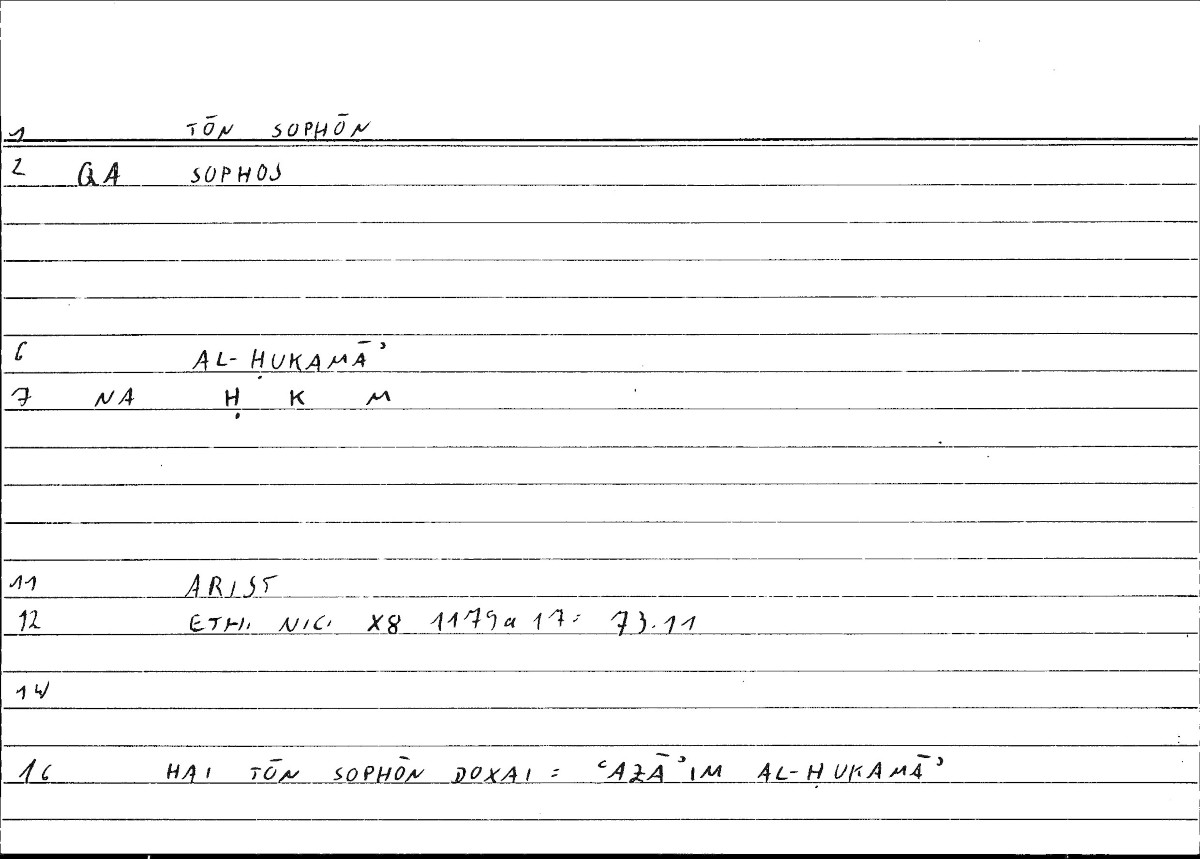 1 TŌN SOPHŌN
2 QA SOPHOS
6 AL-ḤUKAMĀʾ
7 NA Ḥ K M
11 ARIST
12 ETH. NIC. X8 1179a 17: 73.11
14
16 HAI TŌN SOPHŌN DOXAI = ʿAZĀʾIM AL-ḤUKAMĀʾ